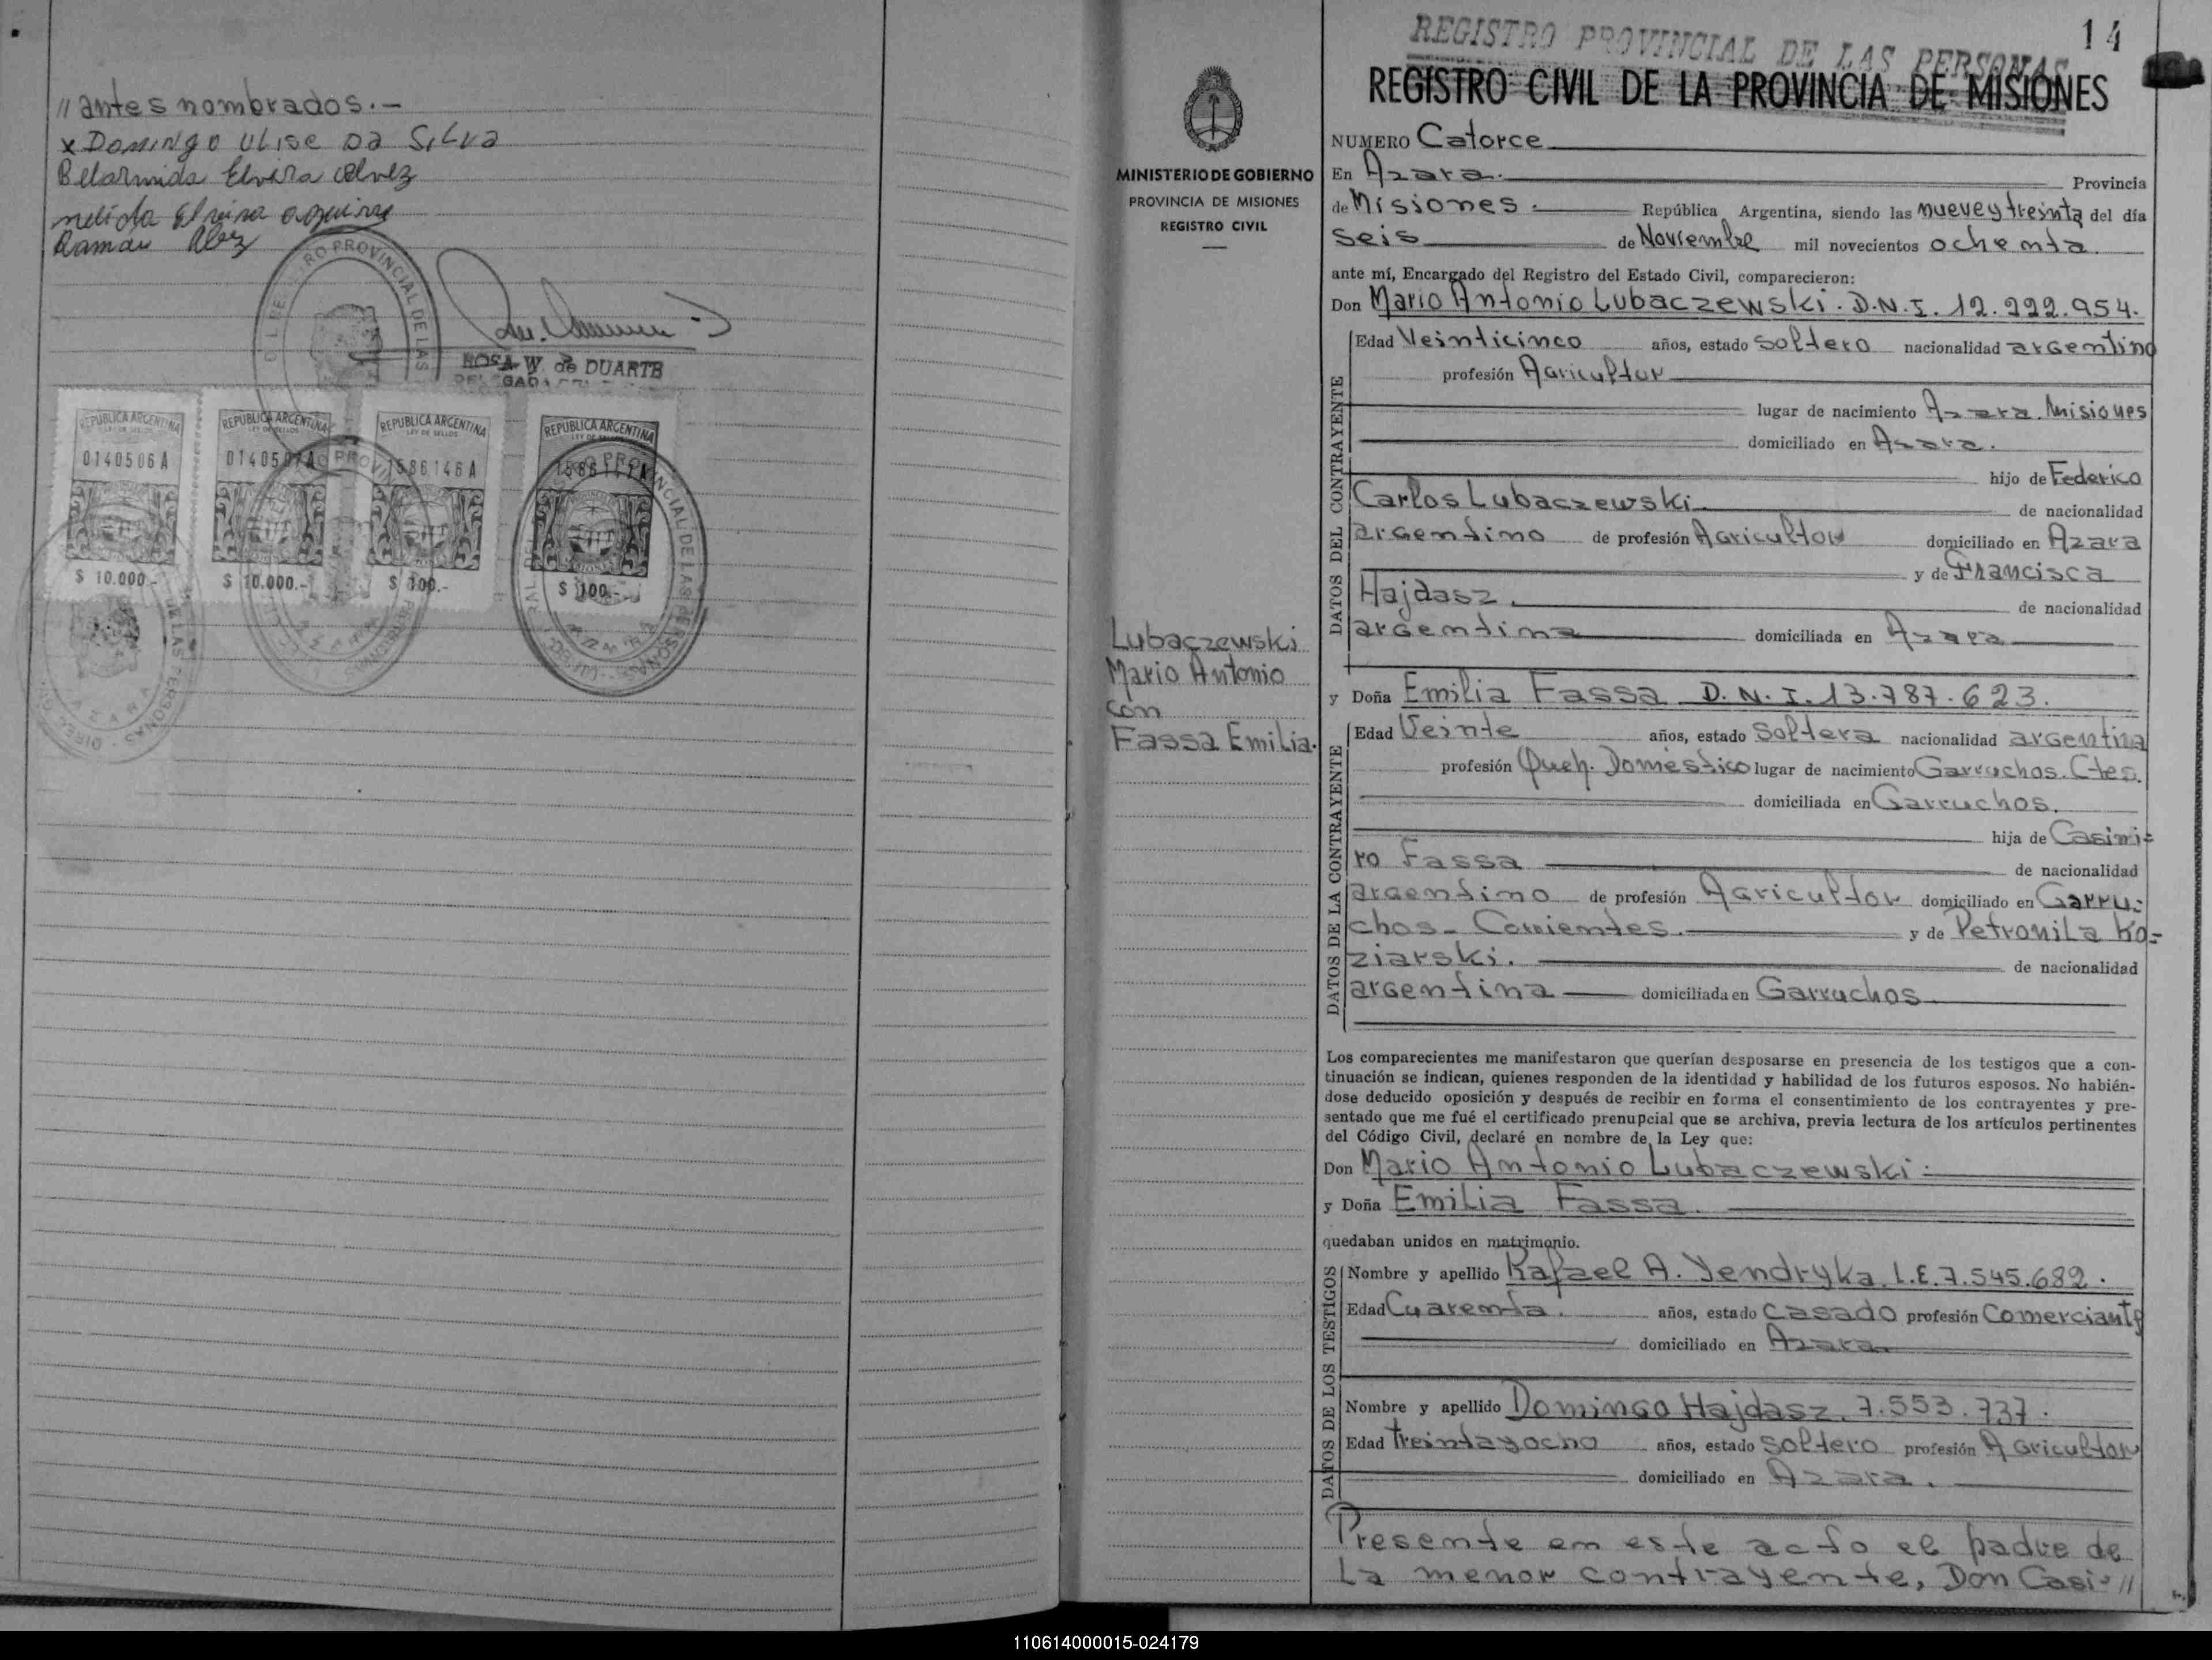 // antes nombrados.-
x Domingo Ulise Da Silva
Belarmida Elvira Alvez
Ramón Alvez
ROSA W. de DUARTE
REPUBLICA ARGENTINA
LEY DE SELLOS
0140506 A
$ 10.000.-
REPUBLICA ARGENTINA
LEY DE SELLOS
$ 10.000.-
REPUBLICA ARGENTINA
LEY DE SELLOS
1586146 A
$ 100.-
REPUBLICA ARGENTINA
LEY DE SELLOS
$ 100.-
MINISTERIO DE GOBIERNO
PROVINCIA DE MISIONES
REGISTRO CIVIL
Lubaczewski
Mario Antonio
con
Fassa Emilia.
14
REGISTRO PROVINCIAL DE LAS PERSONAS
REGISTRO CIVIL DE LA PROVINCIA DE MISIONES
NUMERO Catorce
En Azara. Provincia
de Misiones. República Argentina, siendo las nueve y treinta del día
seis de Noviembre mil novecientos ochenta
ante mí, Encargado del Registro del Estado Civil, comparecieron:
Don Mario Antonio Lubaczewski. D.N.I. 12.222.954.
DATOS DEL CONTRAYENTE
Edad Veinticinco años, estado soltero nacionalidad argentino
profesión Agricultor
lugar de nacimiento Azara. Misiones
domiciliado en Azara.
hijo de Federico
Carlos Lubaczewski. de nacionalidad
argentino de profesión Agricultor domiciliado en Azara
y de Francisca
Hajdasz. de nacionalidad
argentina domiciliada en Azara
y Doña Emilia Fassa D.N.I. 13.787.623.
DATOS DE LA CONTRAYENTE
Edad Veinte años, estado Soltera nacionalidad argentina
profesión Queh. Doméstico lugar de nacimiento Garruchos. Ctes.
domiciliada en Garruchos.
hija de Casimi=
ro Fassa de nacionalidad
argentino de profesión Agricultor domiciliado en Garru=
chos - Corrientes. y de Petronila Ko=
ziarski. de nacionalidad
argentina domiciliada en Garruchos
Los comparecientes me manifestaron que querían desposarse en presencia de los testigos que a con-
tinuación se indican, quienes responden de la identidad y habilidad de los futuros esposos. No habién-
dose deducido oposición y después de recibir en forma el consentimiento de los contrayentes y pre-
sentado que me fué el certificado prenupcial que se archiva, previa lectura de los artículos pertinentes
del Código Civil, declaré en nombre de la Ley que:
Don Mario Antonio Lubaczewski.
y Doña Emilia Fassa.
quedaban unidos en matrimonio.
DATOS DE LOS TESTIGOS
Nombre y apellido Rafael A. Yendryka. L.E. 7.545.682.
Edad Cuarenta. años, estado casado profesión Comerciante
domiciliado en Azara
Nombre y apellido Domingo Hajdasz. 7.553.737.
Edad treinta y ocho años, estado soltero profesión Agricultor
domiciliado en Azara.
Presente en este acto el padre de
la menor contrayente, Don Casi= //
110614000015-024179